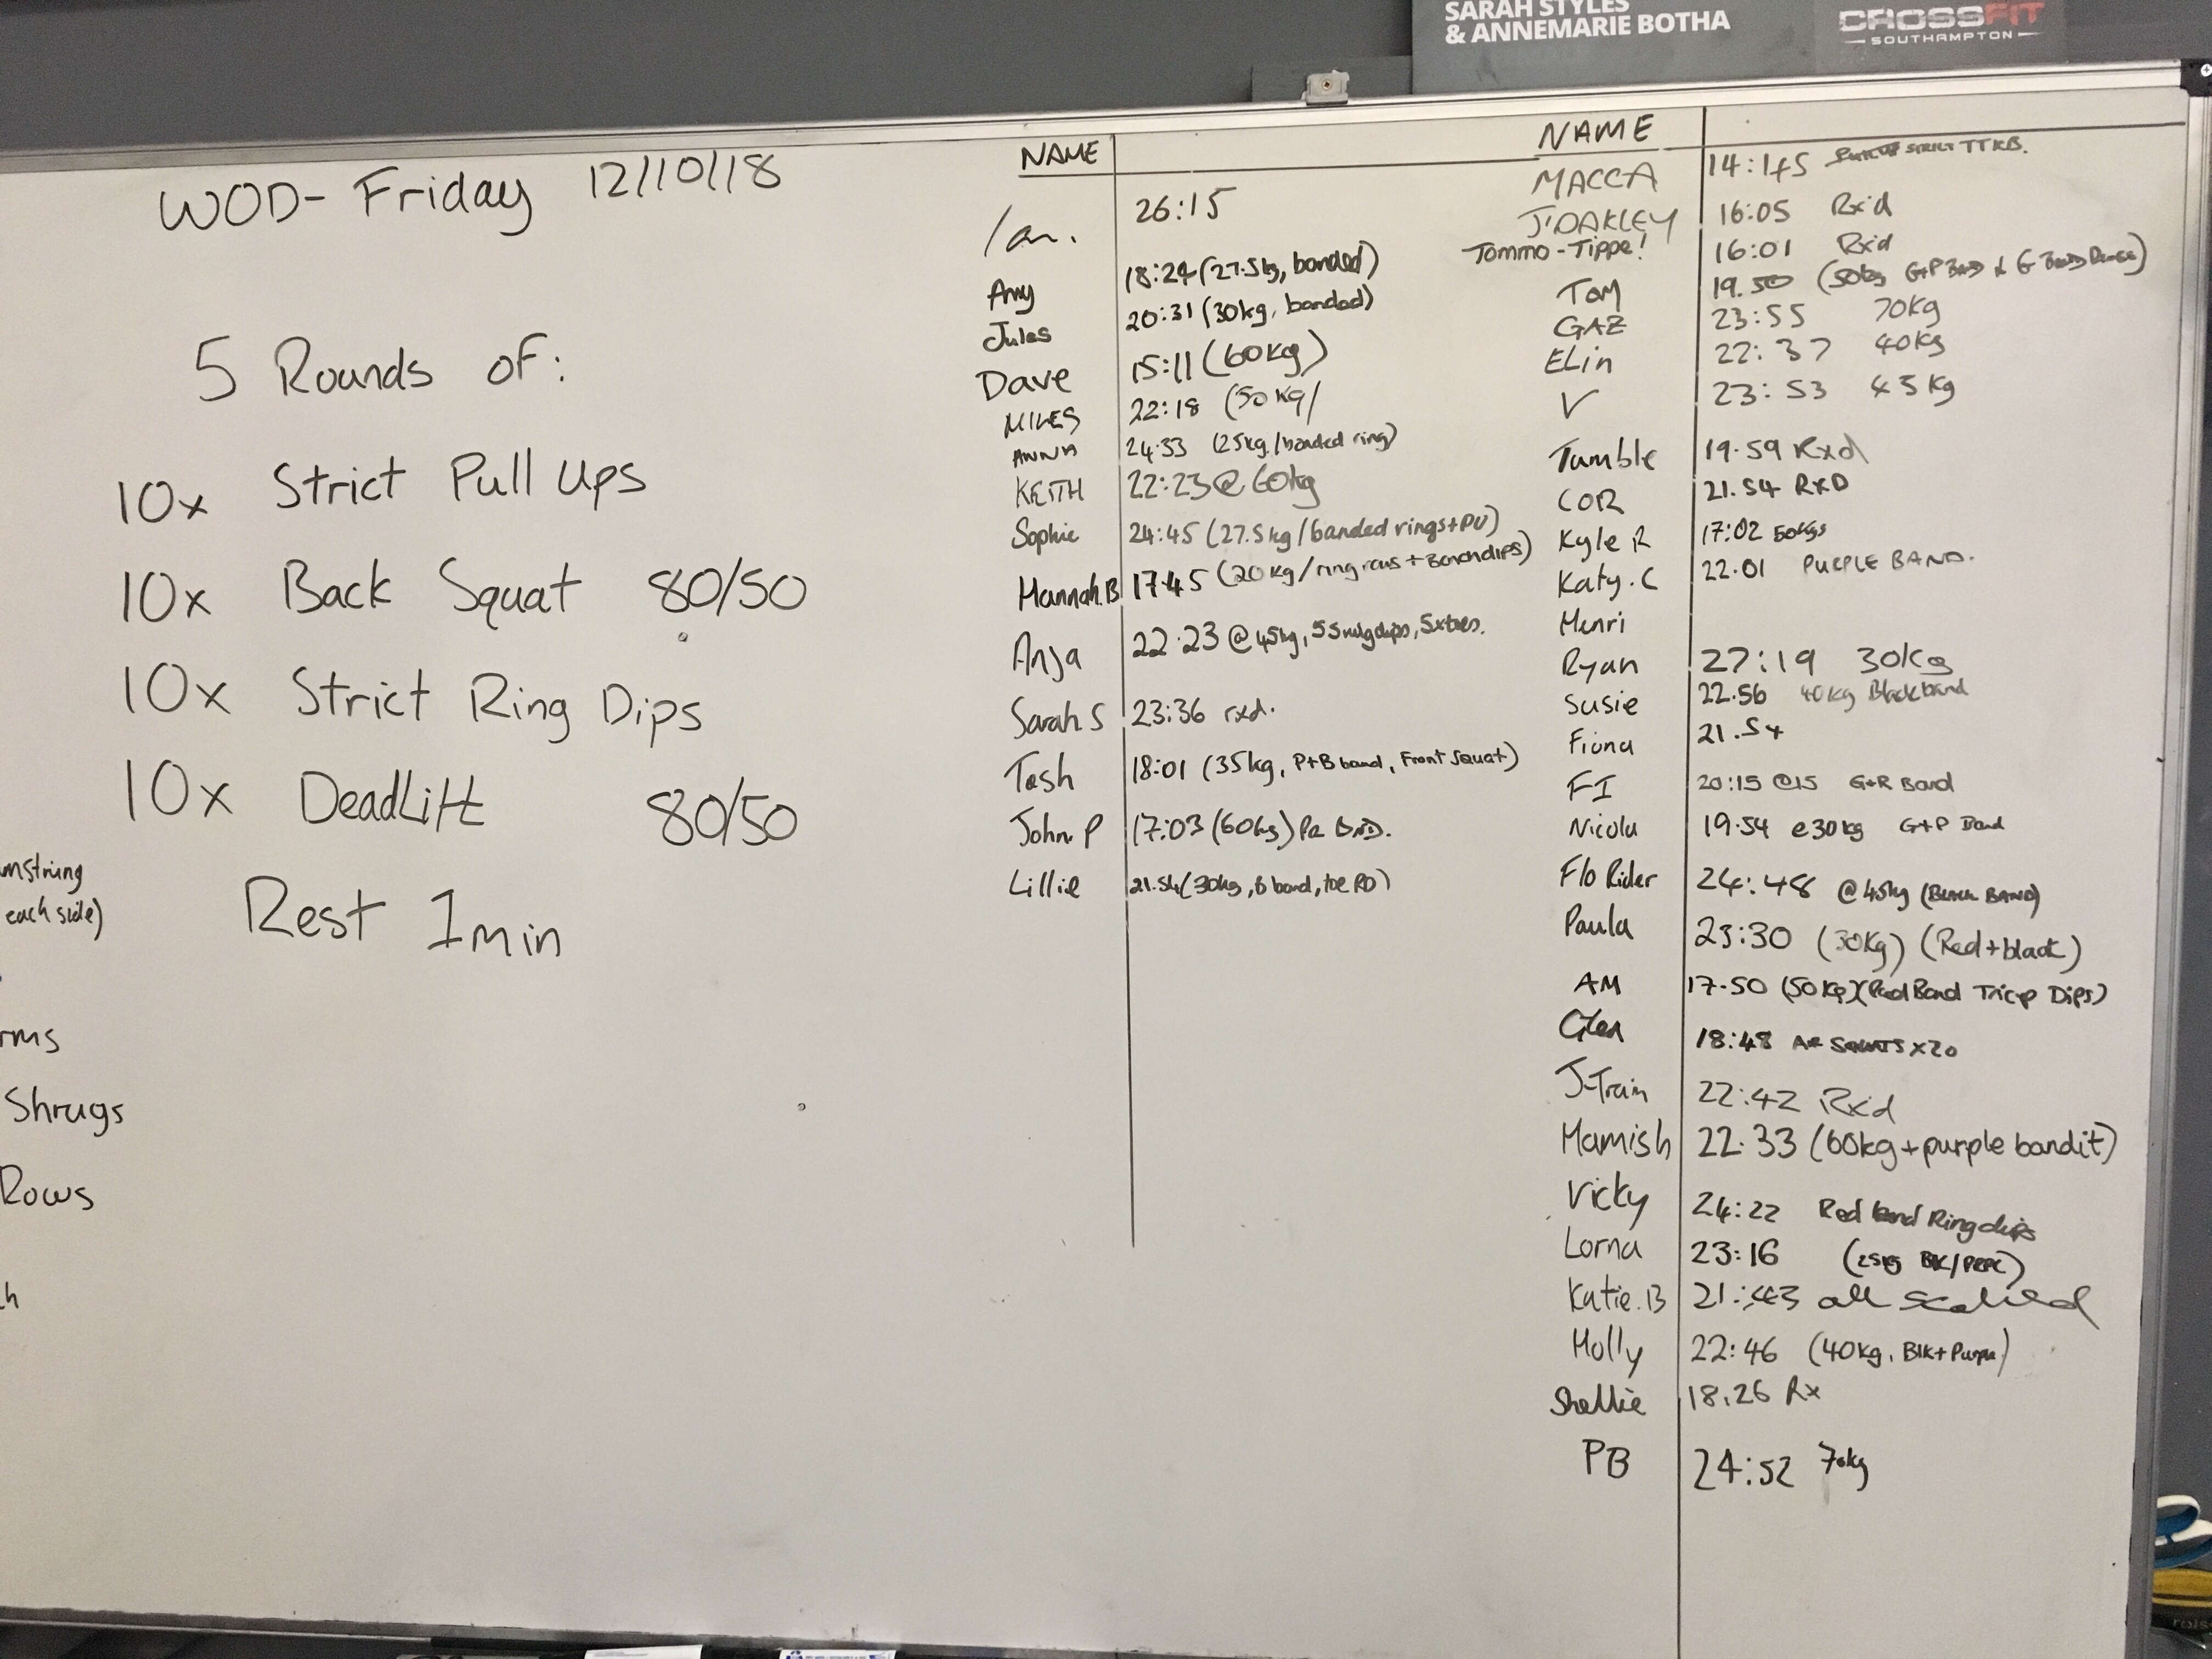 SARAH STYLES
& ANNEMARIE BOTHA
CROSSFIT
SOUTHAMPTON
WOD- Friday 12/10/18
5 Rounds of:
10x Strict Pull Ups
10x Back Squat 80/50
10x Strict Ring Dips
10x DeadLift 80/50
Rest 1min
mstring
each side)
rms
Shrugs
Rows
h
NAME
Ian. 26:15
Amy 18:24 (27.5kg, banded)
Jules 20:31 (30kg, banded)
Dave 15:11 (60kg)
MILES 22:18 (50kg/
ANNA 24:33 (25kg/banded ring)
KEITH 22:23 @ 60kg
Sophie 24:45 (27.5kg/banded rings+PU)
Hannah.B 17:45 (20kg/ring rows + Benchdips)
Anja 22:23 @ 45kg,
Sarah S 23:36 rxd.
Tash 18:01 (35kg, P+B band, Front Squat)
John. P 17:03 (60kg)
Lillie 21.54 (30kg, B band,
NAME
MACCA 14:45 STRICT TTKB.
J'OAKLEY 16:05 Rx'd
Tommo-Tippe! 16:01 Rx'd
Tom 19.50 (50kg G+P Band & G Band
GAZ 23:55 70kg
ELin 22:37 40kg
V 23:53 45kg
Tumble 19.59 Rxd
COR 21.54 RXD
Kyle R 17:02 50kgs
Katy.C 22.01 PURPLE BAND.
Henri
Ryan 27:19 30kg
Susie 22.56 40kg Black band
Fiona 21.54
FI 20:15 @15 G+R Band
Nicola 19.54 @30kg G+P Band
Flo Rider 24:48 @45kg (BLACK BAND)
Paula 23:30 (30kg) (Red+black)
AM 17.50 (50kg)(Red Band Tricep Dips)
Glen 18:48 AIR SQUATS X20
J-Train 22:42 Rx'd
Hamish 22.33 (60kg+purple bandit)
Vicky 24:22 Red band Ring dips
Lorna 23:16 (25kg
Katie.B 21:43 all scaled
Holly 22:46 (40kg, Blk+Purple)
Shellie 18.26 Rx
PB 24:52 70kg